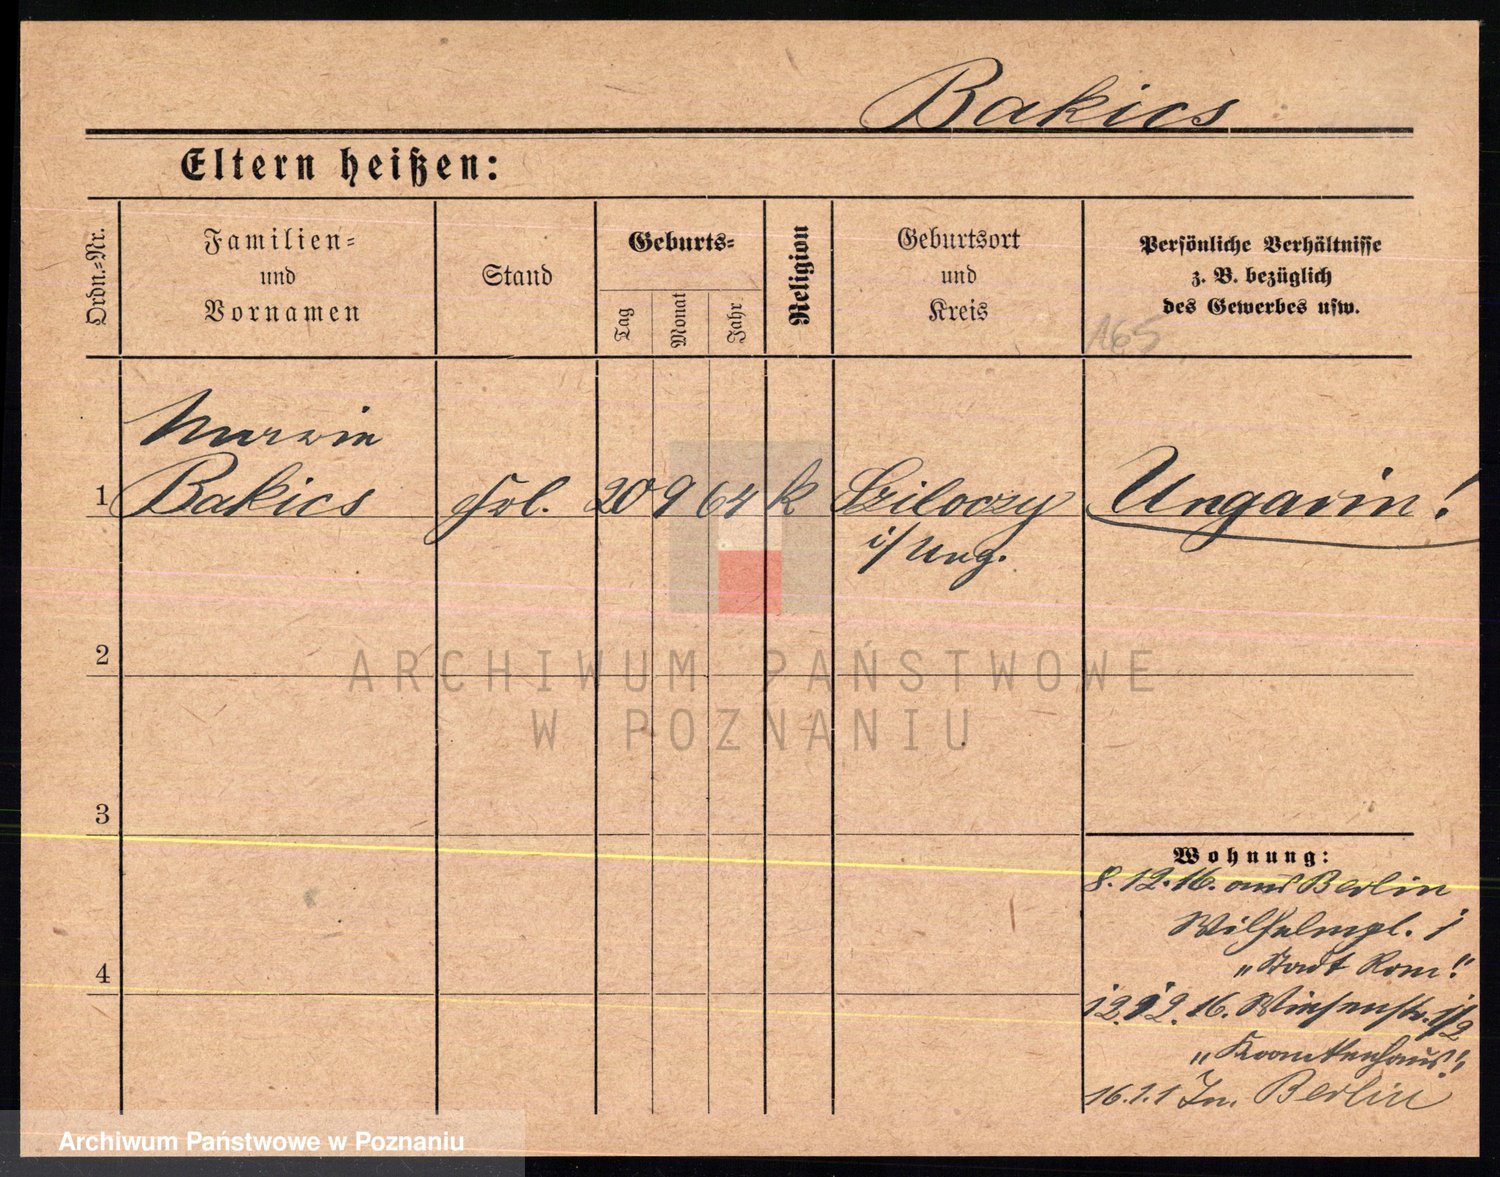 Bakics
Eltern heißen:
Ordn.-Nr.
Familien-
und
Vornamen
Stand
Geburts-
Tag
Monat
Jahr
Religion
Geburtsort
und
Kreis
Persönliche Verhältnisse
z. B. bezüglich
des Gewerbes usw.
165
1
Bakics
Frl.
20 9 64 k
i/ Ung.
Ungarin!
2
3
4
Wohnung:
8.12.16. aus Berlin
Wilhelmpl. 1
„Stadt Rom"
12.12.16. Wiesenstr. 1/2
„Krankenhaus"
Berlin
ARCHIWUM PAŃSTWOWE
W POZNANIU
Archiwum Państwowe w Poznaniu